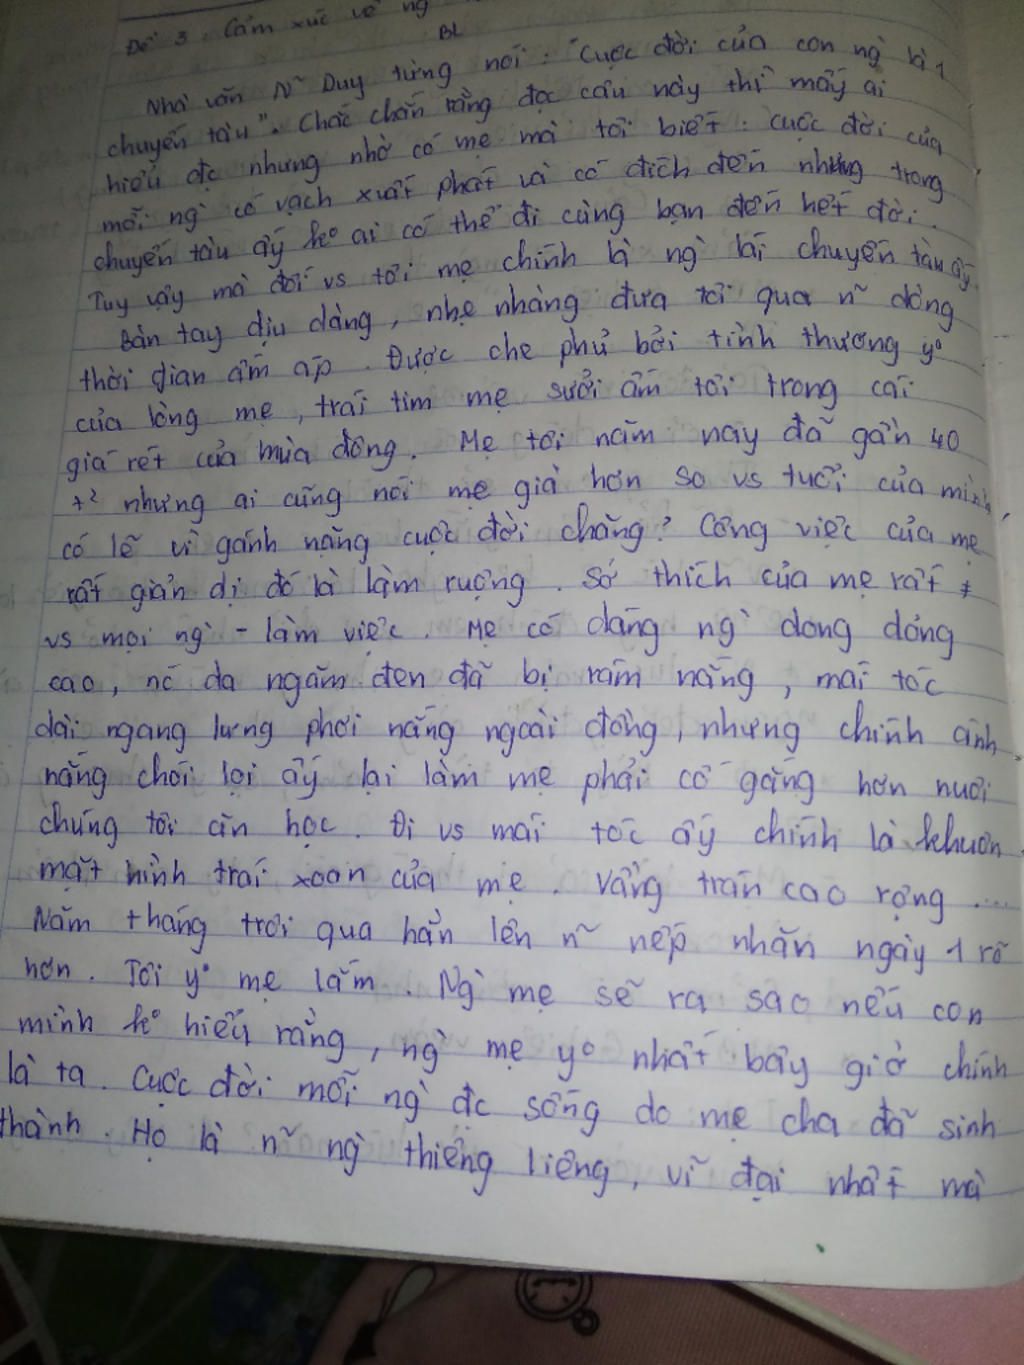 Đề 3: Cảm xúc về ng
BL
Nhà văn N~ Duy từng nói: "Cuộc đời của con ng` là 1
chuyến tàu". Chắc chắn rằng đọc câu này thì mấy ai
hiểu đc nhưng nhờ có mẹ mà tôi biết: cuộc đời của
mỗi ng` có vạch xuất phát và có đích đến nhưng trong
chuyến tàu ấy k° ai có thể đi cùng bạn đến hết đời.
Tuy vậy mà đối vs tôi mẹ chính là ng` lái chuyến tàu ấy.
Bàn tay dịu dàng, nhẹ nhàng đưa tôi qua n~ dòng
thời gian ấm áp. Được che phủ bởi tình thương y°
của lòng mẹ, trái tim mẹ sưởi ấm tôi trong cái
giá rét của mùa đông. Mẹ tôi năm nay đã gần 40
t² nhưng ai cũng nói mẹ già hơn so vs tuổi của mình
có lẽ vì gánh nặng cuộc đời chăng? Công việc của mẹ
rất giản dị đó là làm ruộng. Sở thích của mẹ rất ≠
vs mọi ng` - làm việc. Mẹ có dáng ng` dong dỏng
cao, nc da ngăm đen đã bị rám nắng, mái tóc
dài ngang lưng phơi nắng ngoài đồng, nhưng chính ánh
nắng chói lọi ấy lại làm mẹ phải cố gắng hơn nuôi
chúng tôi ăn học. Đi vs mái tóc ấy chính là khuôn
mặt hình trái xoan của mẹ. Vầng trán cao rộng ....
Năm tháng trôi qua hằn lên n~ nếp nhăn ngày 1 rõ
hơn. Tôi y° mẹ lắm. Ng` mẹ sẽ ra sao nếu con
mình k° hiểu rằng, ng` mẹ y° nhất bây giờ chính
là ta. Cuộc đời mỗi ng` đc sống do mẹ cha đã sinh
thành. Họ là n~ ng` thiêng liêng, vĩ đại nhất mà